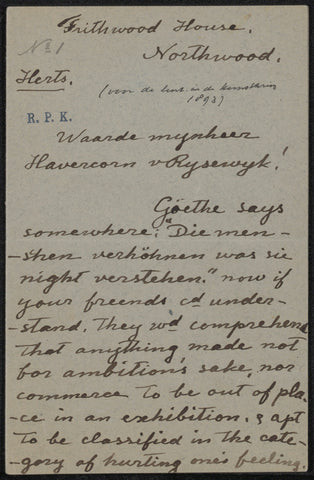 Frithwood House.
No 1
Northwood.
Herts.
(voor de tent. in de kunstkring
1893)
R. P. K.
Waarde mynheer
Havercorn v Rysewyk!
Göethe says
somewhere: "Die men-
-shen verhöhnen was sie
night verstehen." now if
your freends cd under-
-stand, they wd comprehend
that anything made not
for ambition's sake, nor
commerce to be out of pla-
-ce in an exhibition. & apt
to be classified in the cate-
-gory of hurting one's feeling.